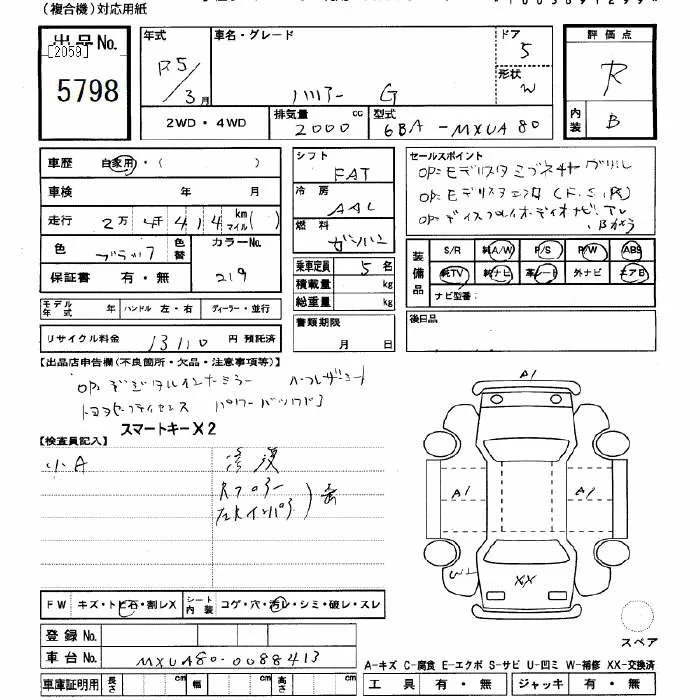 (複合機)対応用紙
出品No. 年式 車名・グレード ドア 5 評価点
[2059]
5798 R5/3月 ハリアー G 形状 W R
2WD・4WD 排気量 2000 cc 型式 6BA-MXUA80 内装 B
車歴 自家用・( ) シフト FAT セールスポイント
車検 年 月 冷房 AAC
走行 2万4千414 km マイル( ) 燃料 ガソリン
色 ブラック 色替 カラーNo. 219
保証書 有・無
乗車定員 5名
積載量 kg
総重量 kg
装備品 S/R 純A/W P/S P/W ABS
純TV 純ナビ 革シート 外ナビ エアB
ナビ型番:
モデル年式 年 ハンドル 左・右 ディーラー・並行
書類期限 月 日
後日品
リサイクル料金 13110 円 預託済
【出品店申告欄(不良箇所・欠品・注意事項等)】
OP=デジタルインナーミラー ハーフレザーシート
トヨタセーフティセンス パワーバックドア
スマートキーX2
【検査員記入】
小A
A1
A1
A1
XX
FW キズ・トビ石・割レX シート内装 コゲ・穴・汚レ・シミ・破レ・スレ
登録No.
車台No. MXUA80-0088413
スペア
A-キズ C-腐食 E-エクボ S-サビ U-凹ミ W-補修 XX-交換済
車庫証明用 長さ cm 幅 cm 高さ cm 工具 有・無 ジャッキ 有・無